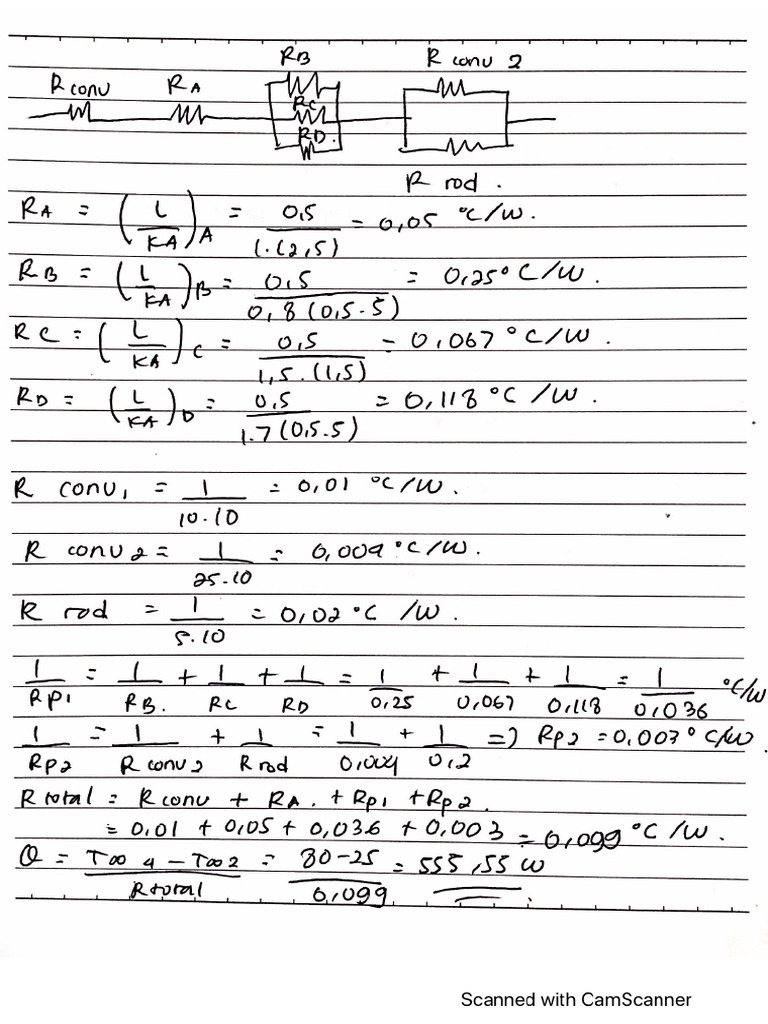 RB R conv 2
R conv RA
RC
RD.
R rod.
RA = (L/KA)A = 0,5/1.(2,5) = 0,05 °C/W.
RB = (L/KA)B = 0,5/0,8(0,5.5) = 0,25° C/W.
RC = (L/KA)C = 0,5/1,5.(1,5) - 0,067 °C/W.
RD = (L/KA)D = 0,5/1.7(0,5.5) = 0,118 °C/W.
R conv1 = 1/10.10 = 0,01 °C/W.
R conv2 = 1/25.10 = 0,004 °C/W.
R rod = 1/5.10 = 0,02 °C/W.
1/RP1 = 1/RB. + 1/RC + 1/RD = 1/0,25 + 1/0,067 + 1/0,118 = 1/0,036 °C/W
1/RP2 = 1/R conv2 + 1/R rod = 1/0,004 + 1/0,2 => RP2 = 0,003° C/W.
R total = R conv + RA. + RP1 + RP2.
= 0,01 + 0,05 + 0,036 + 0,003 = 0,099 °C/W.
Q = T∞ 1 - T∞2/R total = 80-25/0,099 = 555,55 W.
Scanned with CamScanner